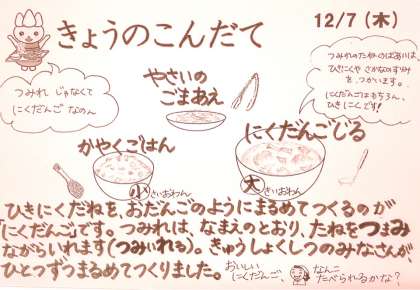 きょうのこんだて
12/7 (木)
つみれ じゃなくて
にくだんご なのん
やさいの
ごまあえ
つみれのたねのばあいは、
ひきにくや さかなのすりみ
を つかいます。
にくだんごはもちろん、
ひきにくです!
かやくごはん
にくだんごじる
小さいおわん
大きいおわん
ひきにくだねを、おだんごのようにまるめてつくるのが
「にくだんご」です。つみれは、なまえのとおり、たねをつまみ
ながらいれます(つみいれる)。きゅうしょくしつのみなさんが
ひとつずつまるめてつくりました。
おいしい
にくだんご、
なんこ
たべられるかな?